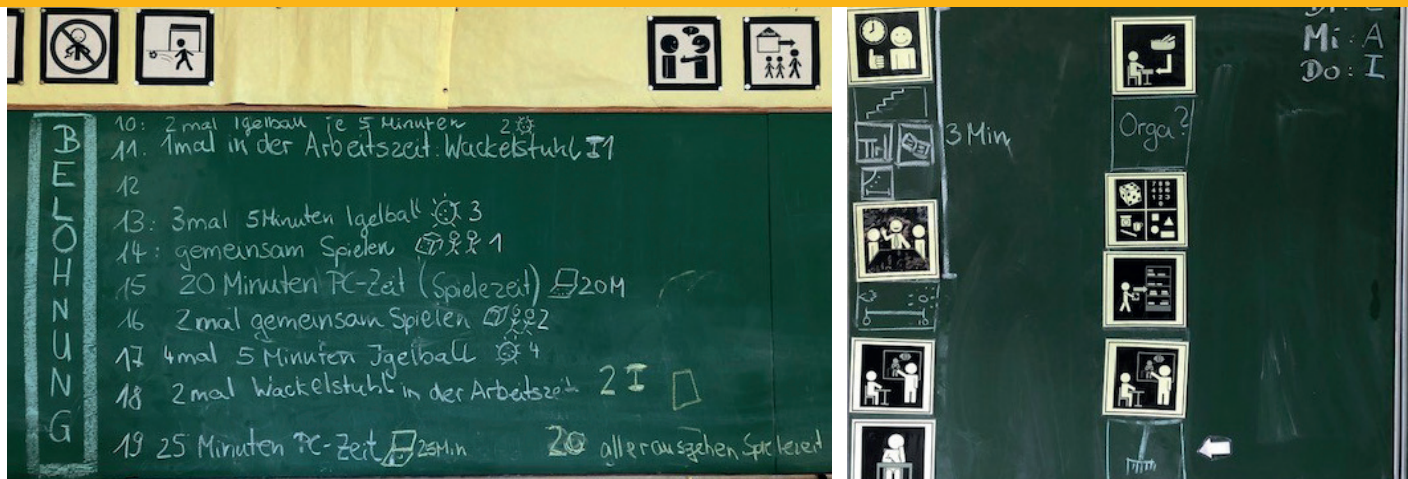 BELOHNUNG
10: 2mal Igelball je 5 Minuten 2
11. 1mal in der Arbeitszeit: Wackelstuhl 1
12
13: 3mal 5 Minuten Igelball 3
14: gemeinsam Spielen 1
15 20 Minuten PC-Zeit (Spielezeit) 20M
16 2mal gemeinsam Spielen 2
17 4mal 5 Minuten Igelball 4
18 2mal Wackelstuhl in der Arbeitszeit 2
19 25 Minuten PC-Zeit 25Min
20
3 Min
Orga?
Mi: A
Do: I